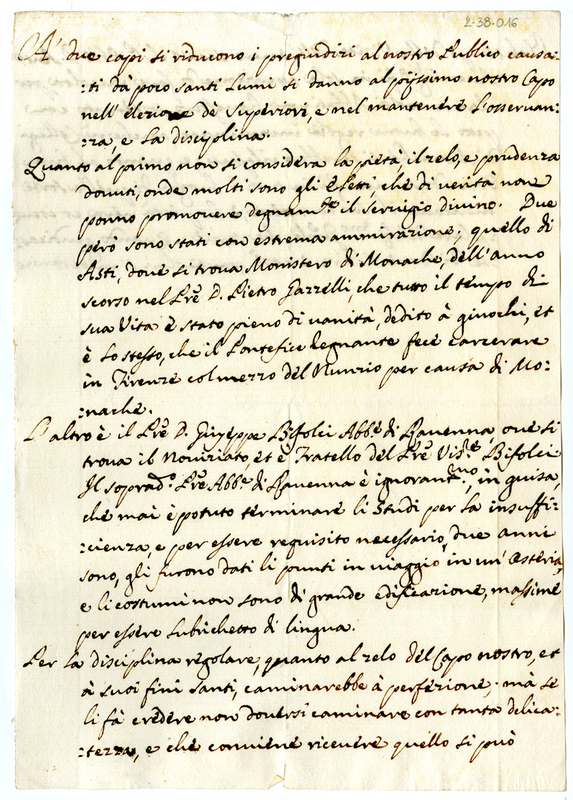 2-38-016
A' due capi si riducono i pregiudizi al nostro Publico causa-
:ti dà poco santi Lumi si danno al pijssimo nostro Capo
nell'elezione dè Superiori, e nel mantenere l'osservan-
:za, e la disciplina.
Quanto al primo non si considera la pietà, il zelo, e prudenza
dovuti, onde molti sono gli eletti, che di verità non
ponno promovere degnam.te il servigio divino. Due
però sono stati con estrema ammirazione; quello di
Asti, dove si trova Monistero di Monache, dell'anno
scorso nel Pre D. Pietro Gazzelli, che tutto il tempo di
sua Vita è stato pieno di vanità, dedito à giuochi, et
è lo stesso, che il Pontefice Regnante fece carcerare
in Firenze col mezzo del Nunzio per causa di Mo-
:nache.
L'altro è il Pre D. Giuseppe Bifolci Abb.e di Ravenna ove si
trova il Noviziato, et è Fratello del Pre Vis.re Bifolci
Il soprad.o Pre Abb.e di Ravenna è ignorant.mo, in guisa,
che mai è potuto terminare li Studi per la insuffi-
:cienza, e per essere requisito necessario, due anni
sono, gli furono dati li punti in viaggio in un'Osteria,
e li costumi non sono di grande edificazione, massime
per essere lubrichetto di lingua.
Per la disciplina regolare, quanto al zelo del Capo nostro, et
à suoi fini santi, caminarebbe à perfezione, mà se
li fà credere non doversi caminare con tanta delica-
:tezza, e che conviene ricevere quello si può